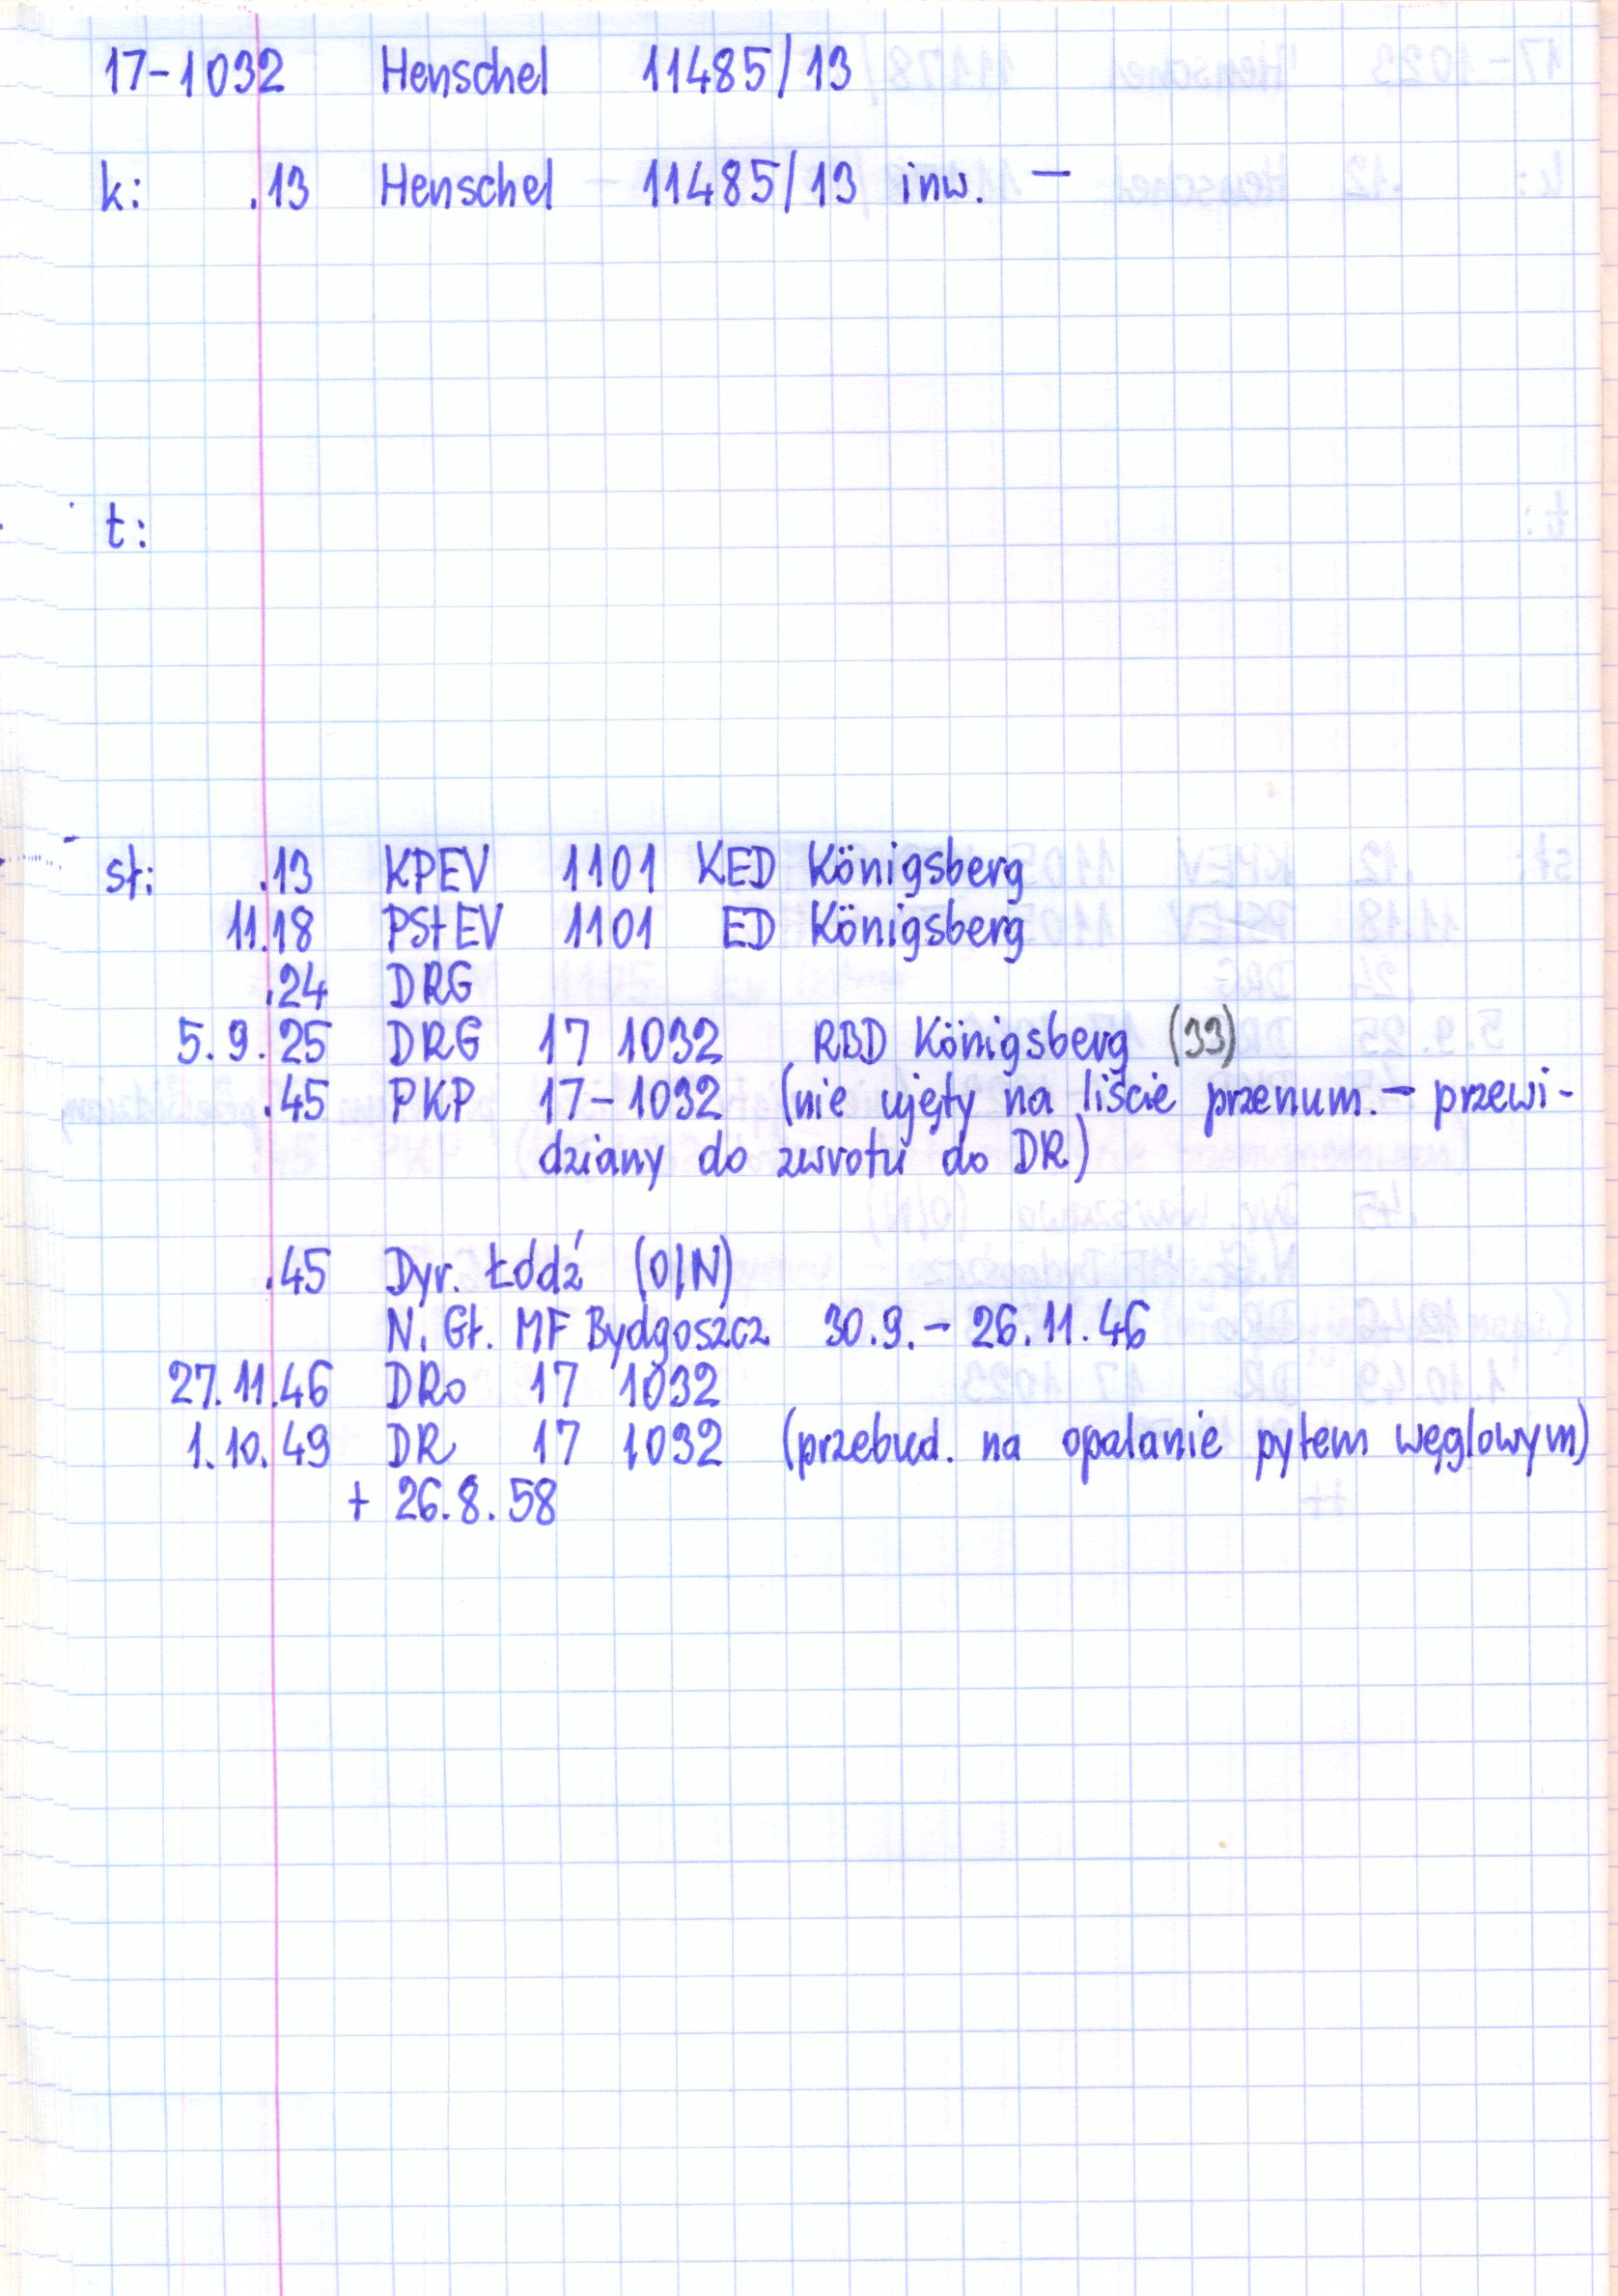 17-1032 Henschel 11485/13
k: .13 Henschel 11485/13 inw. —
t:
st: .13 KPEV 1101 KED Königsberg
11.18 PStEV 1101 ED Königsberg
.24 DRG
5.9.25 DRG 17 1032 RBD Königsberg (33)
.45 PKP 17-1032 (nie ujęty na liście przenum. — przewi-
dziany do zwrotu do DR)
.45 Dyr. Łódź (O/N)
N. Gł. MF Bydgoszcz 30.9. — 26.11.46
27.11.46 DRo 17 1032
1.10.49 DR 17 1032 (przebud. na opalanie pyłem węglowym)
+ 26.8.58